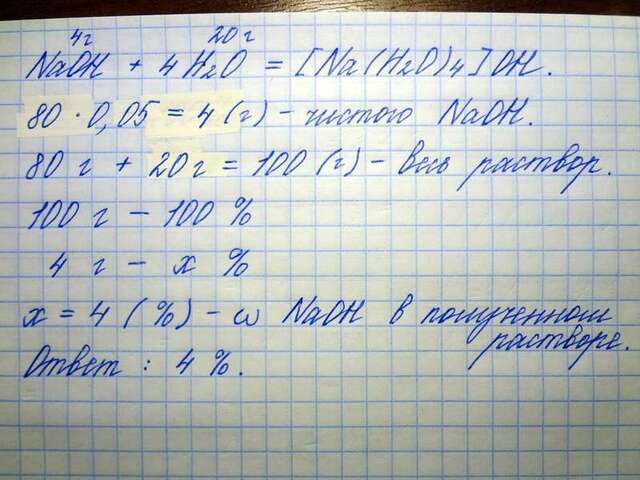 4г 20 г
NaOH + 4H2O = [Na(H2O)4]OH.
80 · 0,05 = 4 (г) - чистого NaOH.
80 г + 20 г = 100 (г) - весь раствор.
100 г - 100 %
4 г - x %
x = 4 (%) - ω NaOH в полученном
растворе.
Ответ : 4 %.